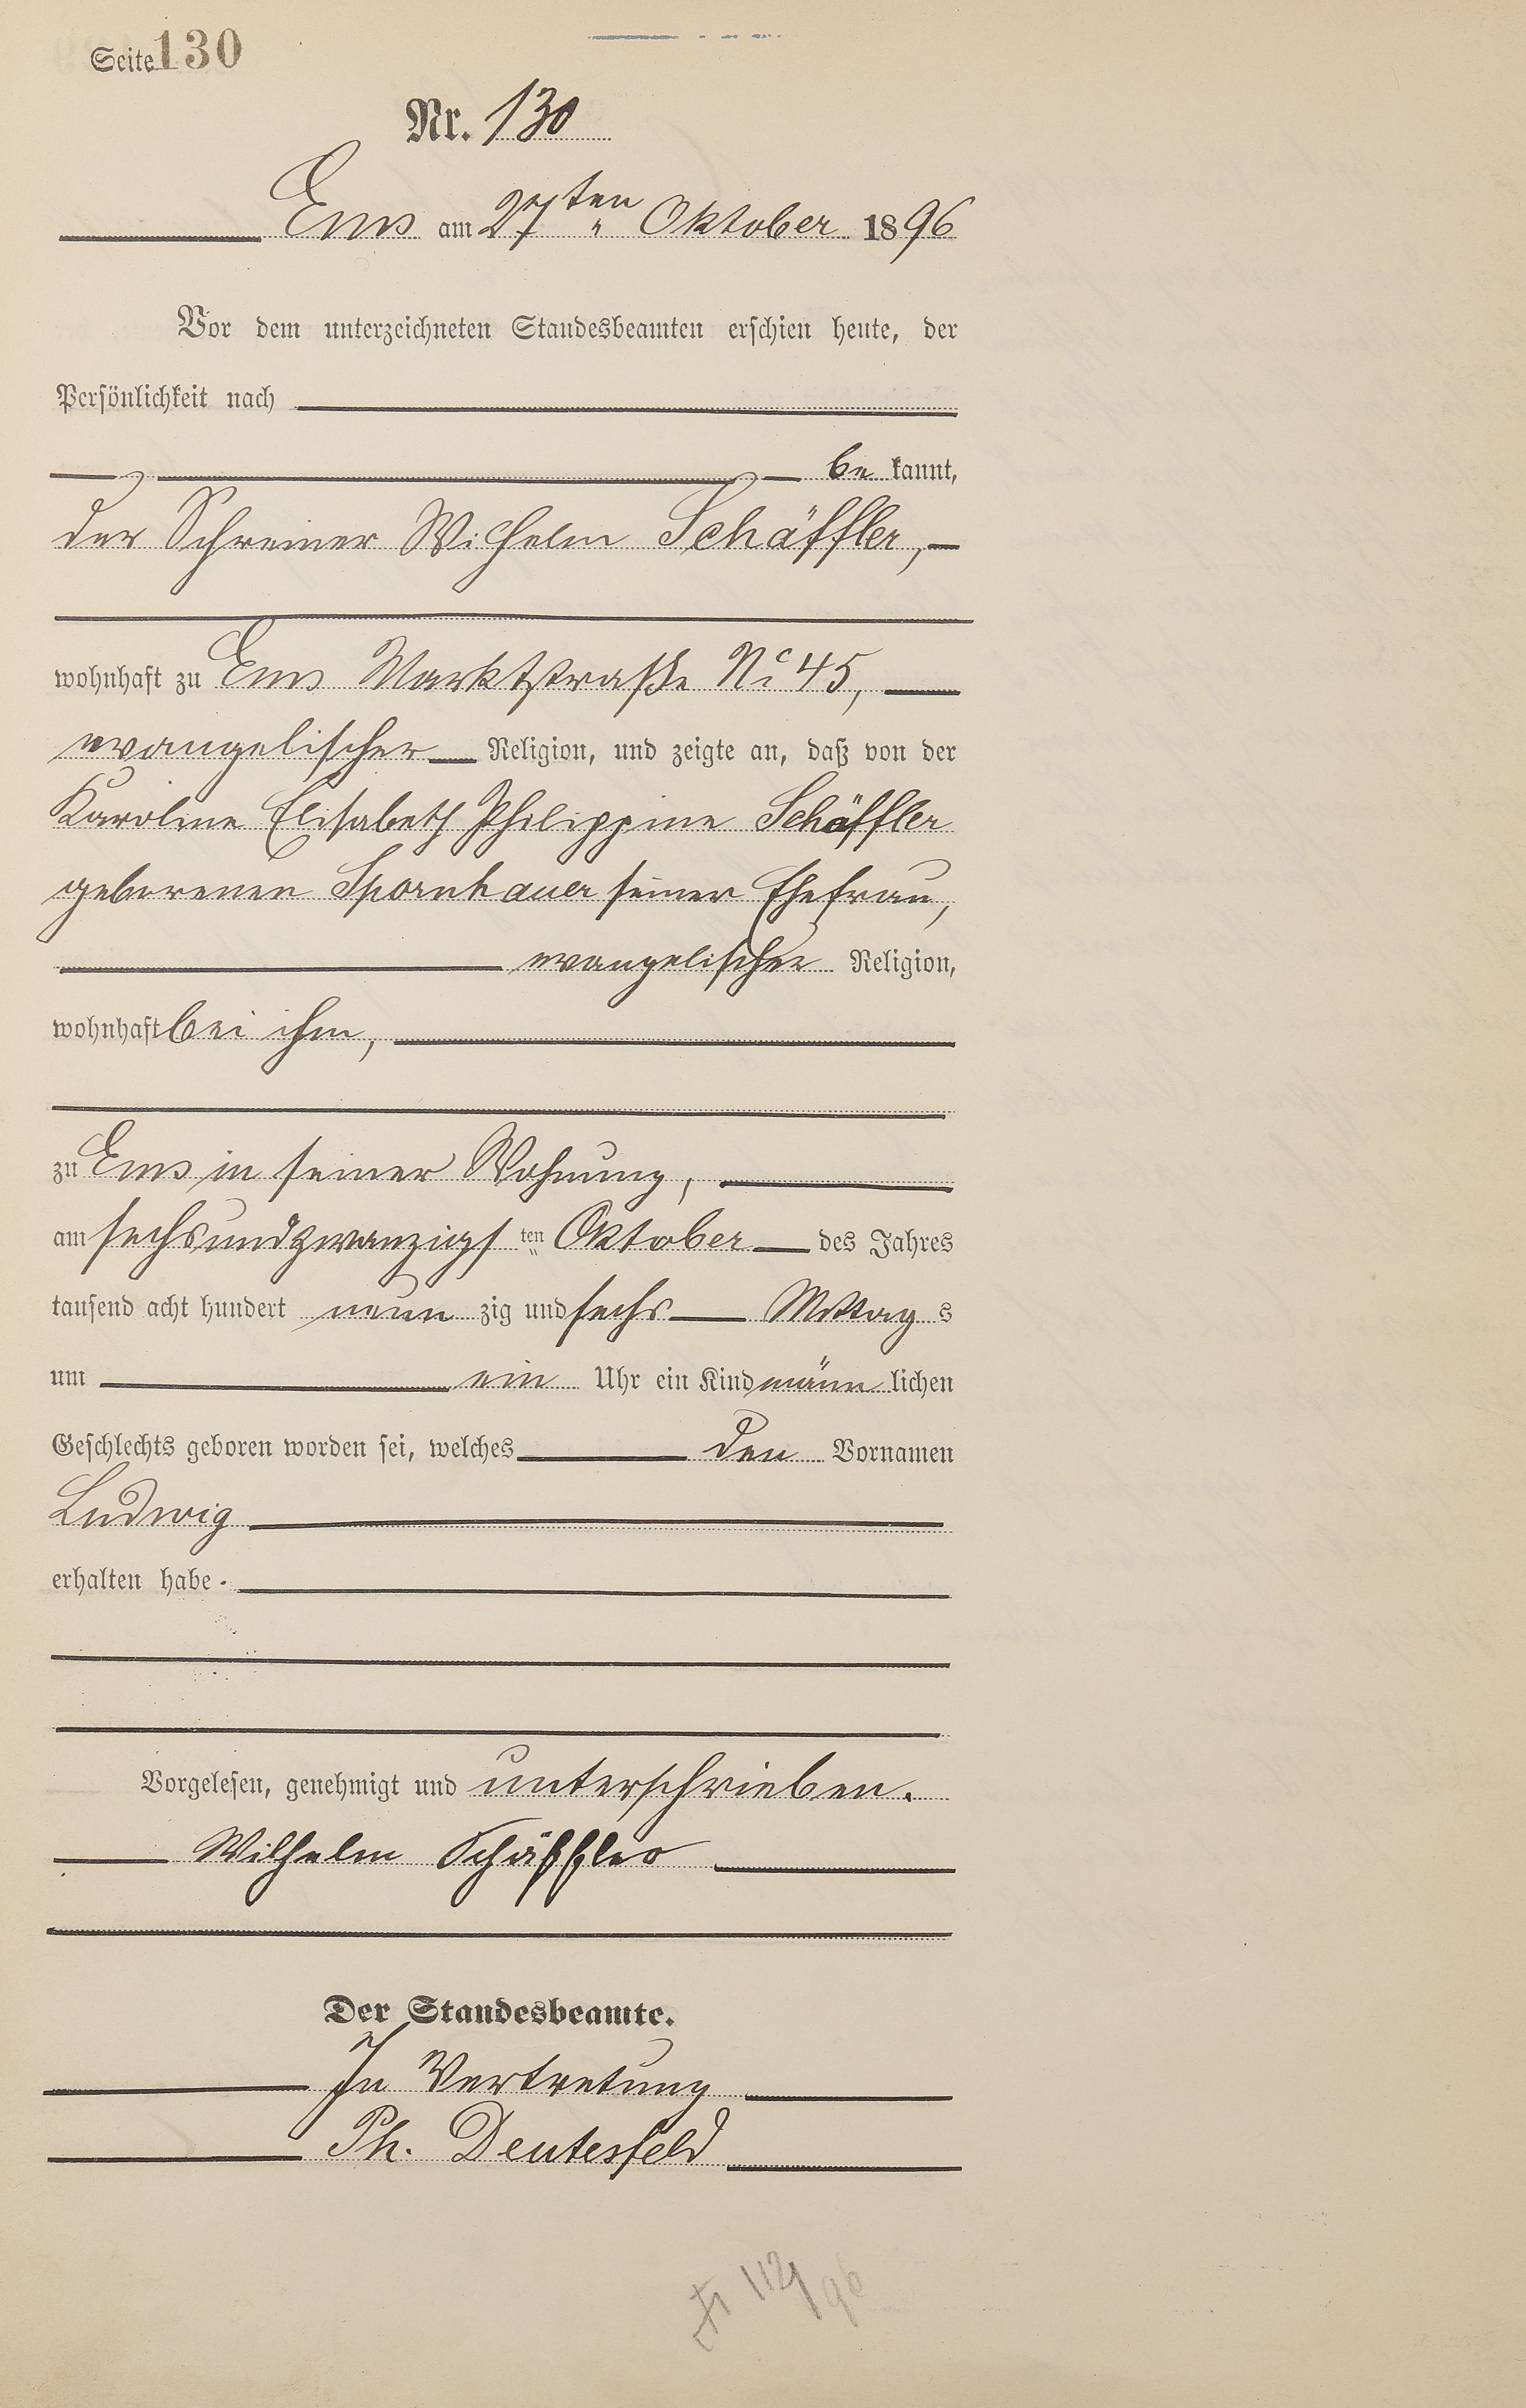 Seite 130
Nr. 130
Ems am 27ten " Oktober 1896
Vor dem unterzeichneten Standesbeamten erschien heute, der
Persönlichkeit nach
be kannt,
der Schreiner Wilhelm Schäffler,
wohnhaft zu Ems Marktstraße No 45,
evangelischer Religion, und zeigte an, daß von der
Karoline Elisabeth Philippine Schäffler
geborenen Spornhauer seiner Ehefrau,
evangelischer Religion,
wohnhaft bei ihm,
zu Ems in seiner Wohnung,
am sechsundzwanzigs ten Oktober des Jahres
tausend acht hundert neun zig und sechs Mittag s
um ein Uhr ein Kind männ lichen
Geschlechts geboren worden sei, welches den Vornamen
Ludwig
erhalten habe.
Vorgelesen, genehmigt und unterschrieben.
Wilhelm Schäffler
Der Standesbeamte.
In Vertretung
Ph. Deutesfeld
96